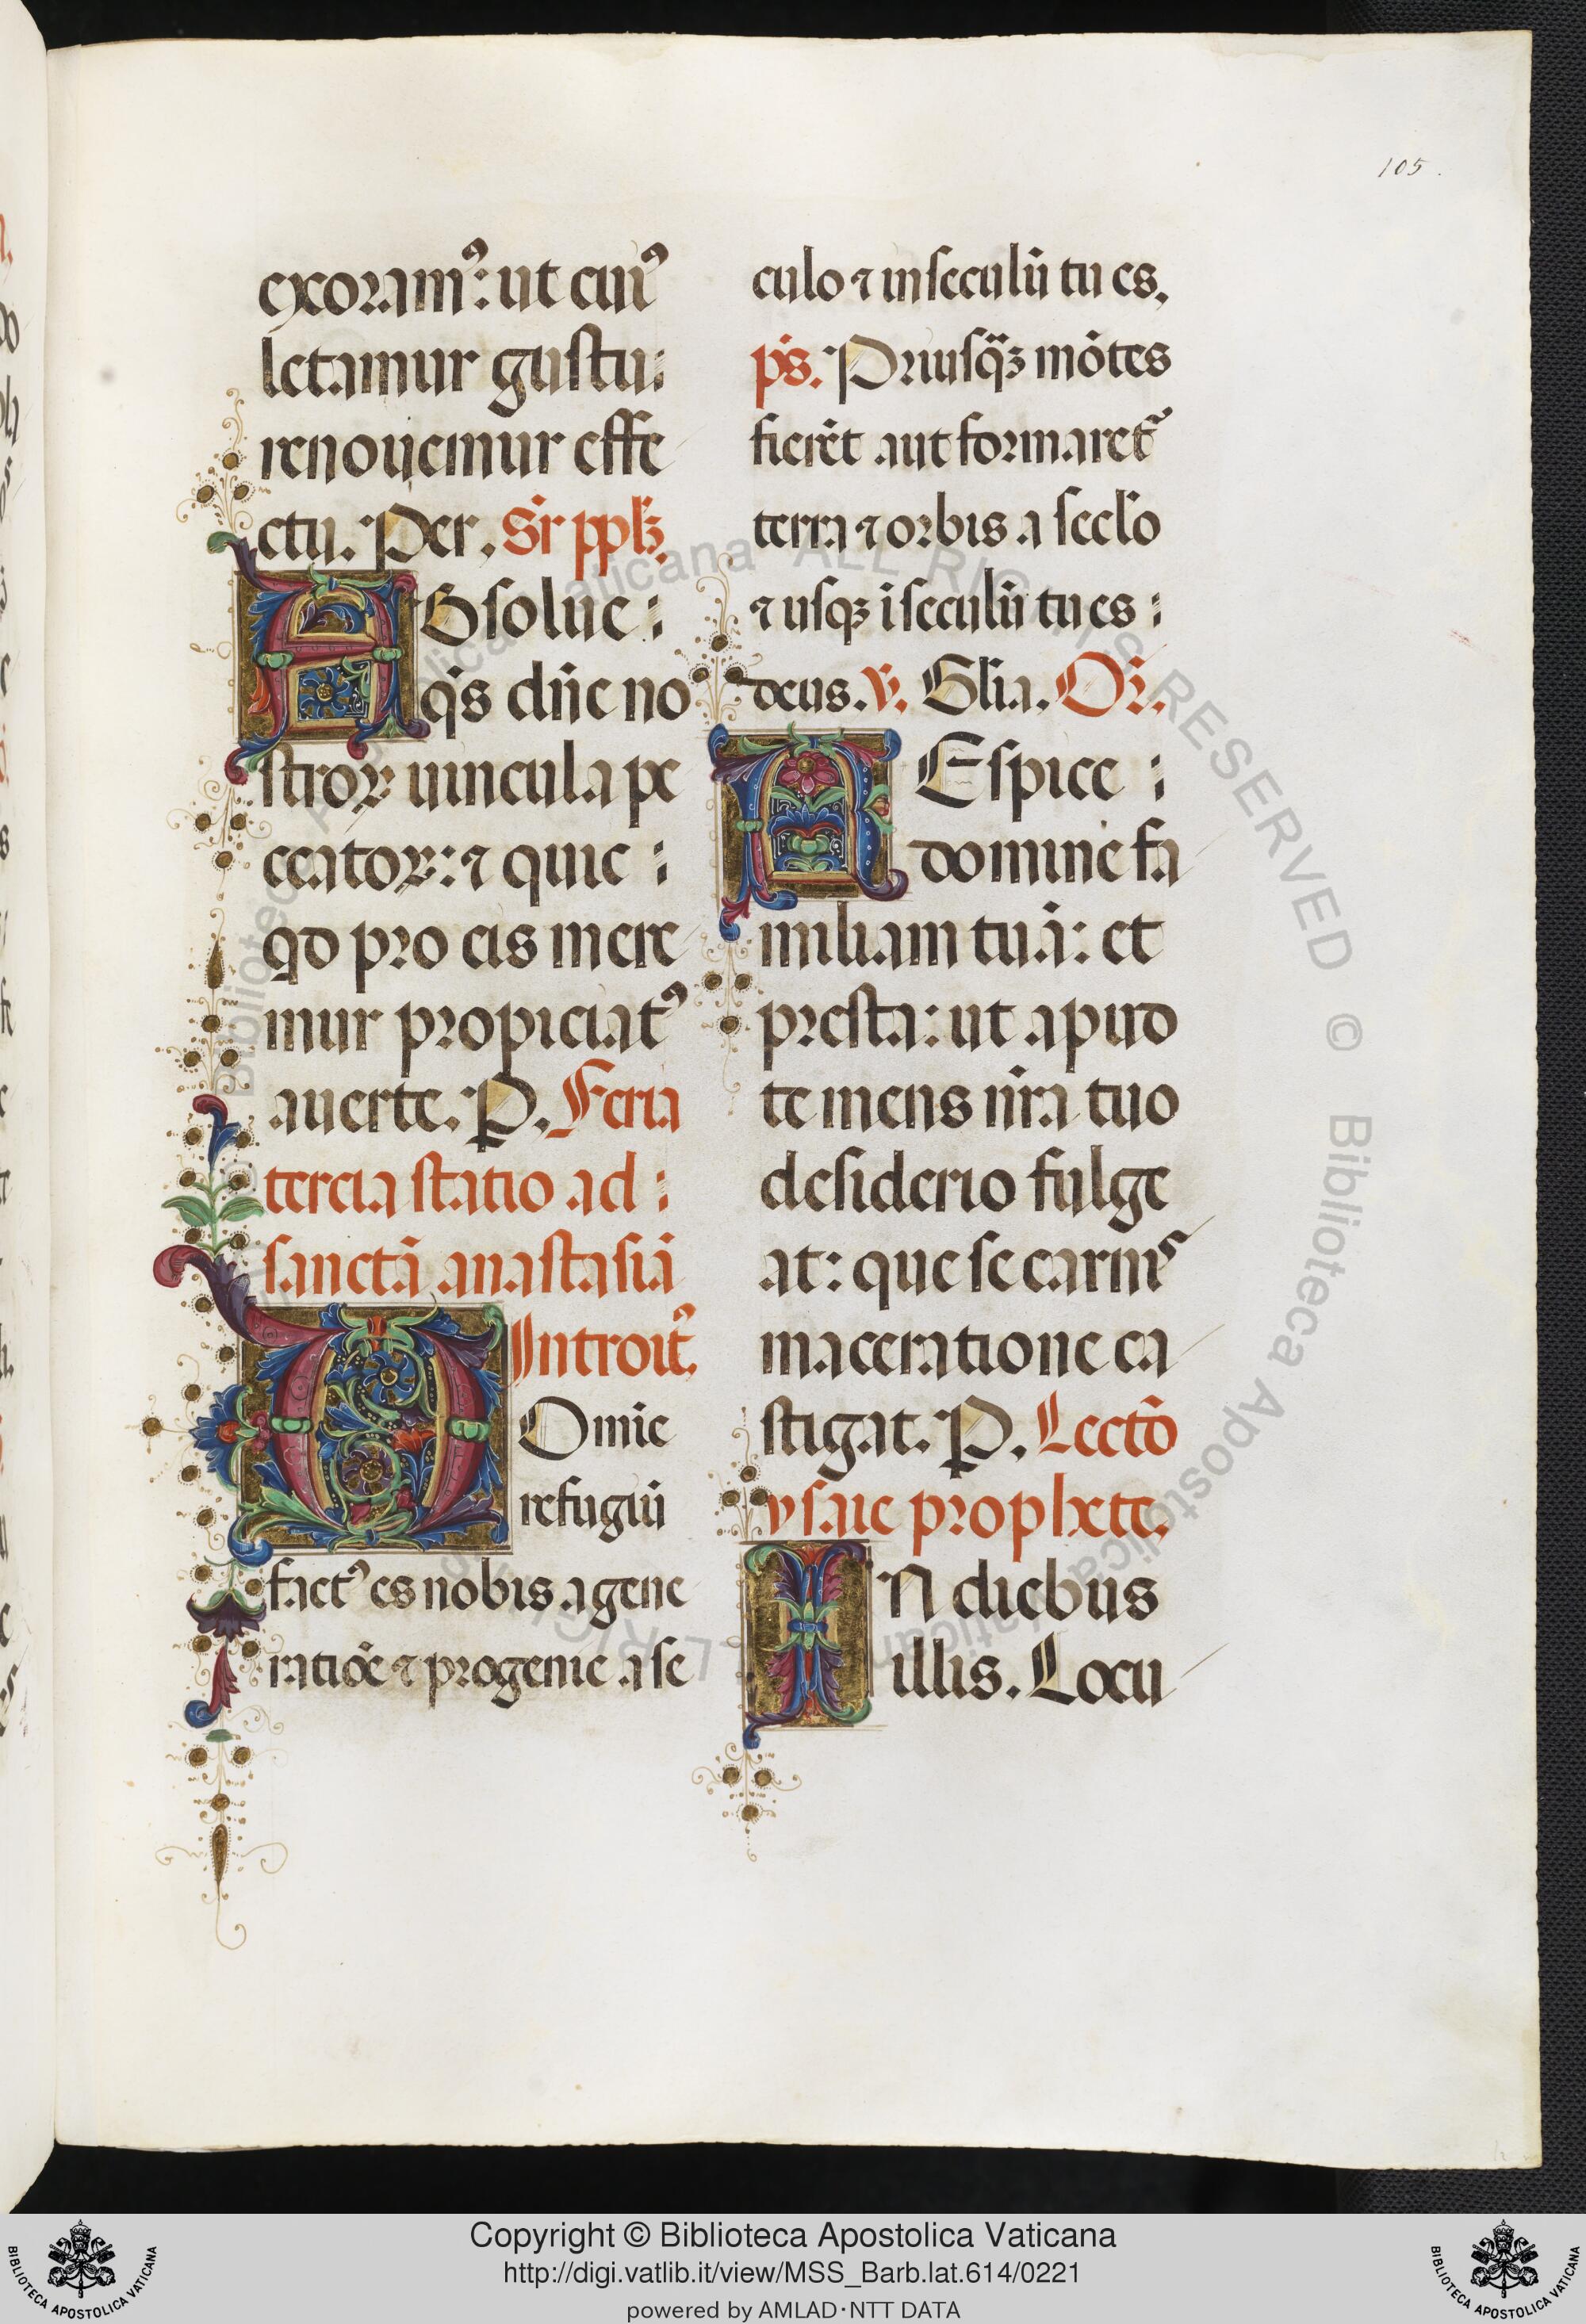 105.
exoram᷒: ut cui᷒
letamur gustu:
renouemur effe
ctu. Per. Sr̄ ppl̄ꝫ.
ABsolue:
q̄s dn̄e no
stroꝝ uincula pe
ccatoꝝ: ⁊ quic:
qd pro eis mere
mur propiciat᷒
auerte. P. Feria
tercia statio ad:
sanctā anastasiā
Introit᷒.
DOmīe
refugiū
fact᷒ es nobis a gene
ratiōe ⁊ progenie a se
culo ⁊ in seculū tu es.
p̄s. Priusq̄ꝫ mōtes
fierēt aut formaret᷒
terra ⁊ orbis a secl̄o
⁊ usqꝫ ī seculū tu es:
deus. V̄. Gl̄ia. Or̄.
REspice:
domine fa
miliam tuā: et
presta: ut apud
te mens nr̄a tuo
desiderio fulge
at: que se carnis
maceratione ca
stigat. P. Lectō
ysaie prophete.
IN diebus
illis. Locu
Biblioteca Apostolica Vaticana ALL RIGHTS RESERVED © Biblioteca Apostolica Vaticana
BIBLIOTECA APOSTOLICA VATICANA
Copyright © Biblioteca Apostolica Vaticana
http://digi.vatlib.it/view/MSS_Barb.lat.614/0221
powered by AMLAD·NTT DATA
BIBLIOTECA APOSTOLICA VATICANA